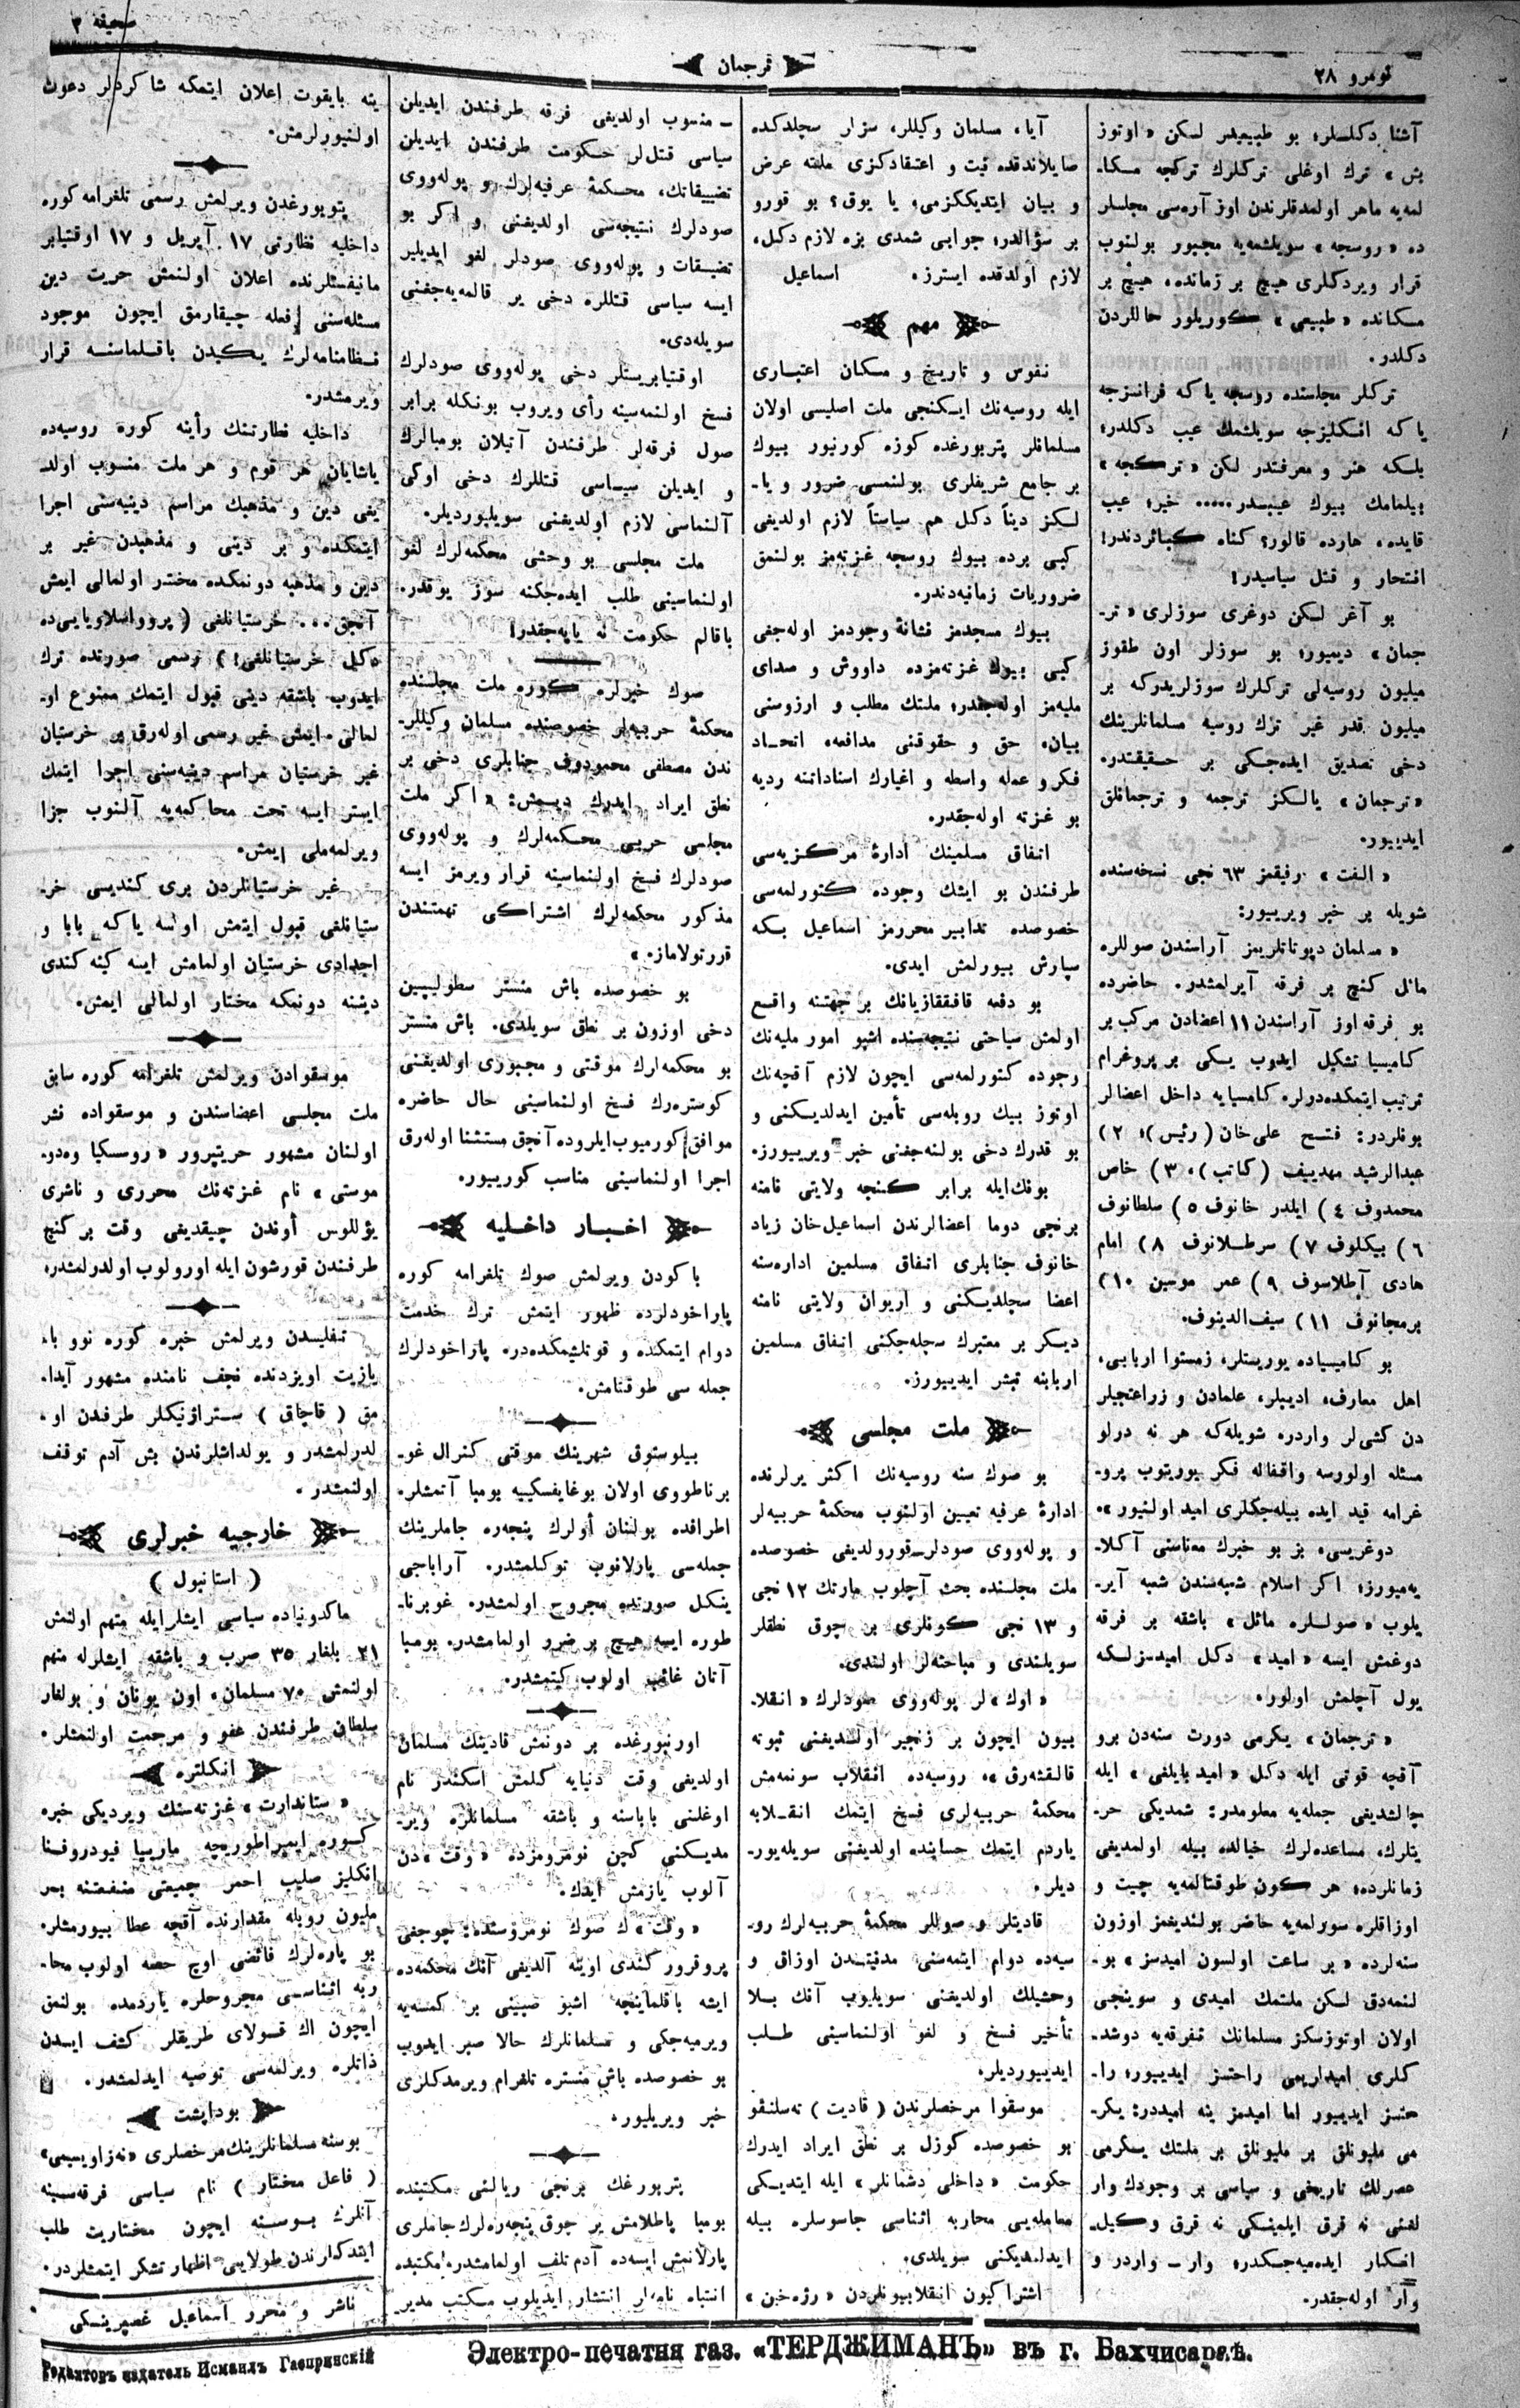 نومرو ٢٨
ترجمان
صحیفه ٣
آشنا دکلسلر؛ بو طبیعیدر لسکن « اوتوز
بش » ترك اوغلی ترکلرك ترکجه مسکا‌ـ
لمه‌یه ماهر اولمدقلرندن اوز آره‌سی مجلسلر
ده « روسجه » سویلشمه‌یه مجبور بولنوب
قرار ویردکلری هیچ بر زمانده، هیچ بر
مسکانده « طبیعی » کوریلور حاللردن
دکلدر.
ترکلر مجلسنده روسجه یا که فرانسزجه
یا که انسکلیزجه سویلشمك عیب دکلدر؛
بلسکه هنر و معرفتدر لکن « ترکجه »
بیلمامك بیوك عیبدر..... خیر؛ عیب
قایده، هارده قالور؟ کناه کبائردندر!
انتحار و قتل سیاسیدر!
بو آغر لسکن دوغری سوزلری « تر‌ـ
جمان » دیمیور؛ بو سوزلر اون طقوز
میلیون روسیه‌لی ترکلرك سوزلریدرکه بر
میلیون قدر غیر ترك روسیه مسلمانلرینك
دخی تصدیق ایده‌جکی بر حقیقتدر.
« ترجمان » یالکز ترجمه و ترجمانلق
ایدییور.
« الفت » رفیقمز ٦٣ نجی نسخه‌سنده
شویله بر خبر ویرییور:
« مسلمان دپوتاتلریمز آراسندن صوللره
مائل کنج بر فرقه آیرلمشدر. حاضرده
بو فرقه اوز آراسندن ١١ اعضادن مرکب بر
کامیسیا تشکیل ایدوب یسکی بر پروغرام
ترتیب ایتمکده‌درلر. کامسیایه داخل اعضالر
بونلردر: فتسح علی خان ( رئیس )، ٢ )
عبدالرشید مهدییف ( کاتب )، ٣ ) خاص
محمدوف ٤ ) ایلدر خانوف ٥ ) سلطانوف
٦ ) بیکلوف ٧ ) سرطلانوف ٨ ) امام
هادی آطلاسوف ٩ ) عمر موسین ١٠ )
برمجانوف ١١ ) سیف‌الدینوف.
بو کامیسیاده یوریستلر، زمستوا اربابی،
اهل معارف، ادیبلر، علمادن و زراعتجیلر
دن کشی‌لر واردر. شویله‌که هر نه درلو
مسئله اولورسه واقفانه فکر یوریتوب پرو‌ـ
غرامه قید ایده بیله‌جکلری امید اولنیور ».
دوغریسی، بز بو خبرك معناسنی آکلا‌ـ
یه‌میورز؛ اکر اسلام شعبه‌سندن شعبه آیر‌ـ
یلوب « صوللره مائل » باشقه بر فرقه
دوغمش ایسه « امید » دکل امیدسزلسکه
یول آچلمش اولور.
« ترجمان » یکرمی دورت سنه‌دن برو
آقجه قوتی ایله دکل « امید بایلغی » ایله
چالشدیغی جمله‌یه معلومدر: شمدیکی حر‌ـ
یتلرك، مساعده‌لرك خیالده بیله اولمدیغی
زمانلرده، هر کون طوقتالمه‌یه چیت و
اوزاقلره سورلمه‌یه حاضر بولندیغمز اوزون
سنه‌لرده « بر ساعت اولسون امیدسز » بو‌ـ
لنمه‌دق لسکن ملتمك امیدی و سوینجی
اولان اوتوزسکز مسلمانك تفرقه‌یه دوشد‌ـ
کلری امیداریمی راحتسز ایدییور؛ را‌ـ
حتسز ایدییور اما امیدمز ینه امیددر: یکر‌ـ
می ملیونلق بر ملیونلق بر ملتك یسکرمی
عصرلك تاریخی و سیاسی بر وجودك وار
لغنی نه قرق ایلمیسکی نه قرق وکیل‌ـ
انسکار ایده‌میه‌جسکدر؛ وار ـ واردر و
وار اوله‌جقدر.
آیا، مسلمان وکیللر، سزلر سچلدکده
صایلاندقده نیت و اعتقادکزی ملته عرض
و بیان ایتدیککزمی، یا یوق؟ بو قورو
بر سؤالدر؛ جوابی شمدی بزه لازم دکل،
لازم اولدقده ایسترز. اسماعیل
مهم
نفوس و تاریخ و مسکان اعتباری
ایله روسیه‌نك ایسکنجی ملت اصلیسی اولان
مسلمانلر پتربورغده کوزه کورنیور بیوك
بر جامع شریفلری بولنمسی ضرور و یا‌ـ
لسکز دیناً دکل هم سیاستاً لازم اولدیغی
کبی برده بیوك روسجه غزته‌مز بولنمق
ضروریات زمانیه‌دندر.
بیوك مسجدمز نشانهٔ وجودمز اوله‌جغی
کبی بیوك غزته‌مزده داووش و صدای
ملیه‌مز اوله‌جقدر، ملتك مطلب و ارزوسنی
بیان، حق و حقوقنی مدافعه، اتحـاد
فکر و عمله واسطه و اغیارك اسناداتنه ردیه
بو غزته اوله‌جقدر.
اتفاق مسلمینك ادارهٔ مرکزیه‌سی
طرفندن بو ایشك وجوده کتورلمه‌سی
خصوصده تدابیر محررمز اسماعیل بسکه
سپارش بیورلمش ایدی.
بو دفعه قافقازیانك بر جهتنه واقـع
اولمش سیاحتی نتیجه‌سنده اشبو امور ملیه‌نك
وجوده کتورلمه‌سی ایچون لازم آقجه‌نك
اوتوز بیك روبله‌سی تأمین ایدلدیسکنی و
بو قدرك دخی بولنه‌جغنی خبر ویرییورز.
بونك‌ایله برابر کنجه ولایتی نامنه
برنجی دوما اعضالرندن اسماعیل خان زیاد
خانوف جنابلری اتفاق مسلمین اداره‌سنه
اعضا سچلدیسکنی و اریوان ولایتی نامنه
دیسکر بر معتبرك سچله‌جکنی اتفاق مسلمین
اربابنه تبشر ایدییورز.
ملت مجلسی
بو صوك سنه روسیه‌نك اکثر یرلرنده
ادارهٔ عرفیه تعیین اولنوب محکمهٔ حربیه‌لر
و پوله‌ووی صودلر ـ قورولدیغی خصوصده
ملت مجلسنده بحث آچلوب مارتك ١٢ نجی
و ١٣ نجی کونلری بر چوق نطقلر
سویلندی و مباحثه‌لر اولندی.
« اوك »لر پوله‌ووی صودلرك « انقلا‌ـ
بیون ایچون بر زنجیر اولدیغنی ثبوته
قالقشه‌رق »، روسیه‌ده انقلاب سونمه‌مش
محکمهٔ حربیه‌لری فسخ ایتمك انقـلابه
یاردم ایتمك حسابنده اولدیغنی سویله‌یور‌ـ
دیلر.
قادیتلر و صوللر محکمهٔ حربیه‌لرك رو‌ـ
سیه‌ده دوام ایتمه‌سنی مدنیتـدن اوزاق و
وحشیلك اولدیغنی سویلیوب آنك بلا
تأخیر فسخ و لغو اولنماسینی طـلب
ایدییوردیلر.
موسقوا مرخصلرندن ( قادیت ) ته‌سلنقو
بو خصوصده کوزل بر نطق ایراد ایدرك
حکومت « داخلی دشمانلر » ایله ایتدیـکی
معامله‌یی محاربه اثناسی جاسوسلره بیله
ایدلمدیکنی سویلدی.
اشتراکیون انقلابیونلردن « رژه‌خین »
ـ منسوب اولدیغی فرقه طرفندن ایدیلن
سیاسی قتل‌لر حسکومت طرفندن ایدیلن
تضییقاتك، محسکمهٔ عرفیه‌لرك و پوله‌ووی
صودلرك نتیجه‌سی اولدیغنی و اکر بو
تضییقات و پوله‌ووی صودلر لغو ایدیلیر
ایسه سیاسی قتللره دخی یر قالمه‌یه‌جغنی
سویله‌دی.
اوقتیابریستلر دخی پوله‌ووی صودلرك
فسخ اولنمه‌سینه رأی ویروب بونکله برابر
صول فرقه‌لر طرفندن آتیلان بومبالرك
و ایدیلن سیـاسی قتللرك دخی اوکی
آلنماسی لازم اولدیغنی سویلیوردیلر.
ملت مجلسی بو وحشی محکمه‌لرك لغو
اولنماسینی طلب ایده‌جکنه سوز یوقدر.
باقالم حکومت نه یاپه‌جقدر!
صوك خبرلره کوره ملت مجلسنده
محکمهٔ حربیه‌لر خصوصنده مسلمان وکیللر‌ـ
ندن مصطفی محمودوف جنابلری دخی بر
نطق ایراد ایدرك دیمش: « اکر ملت
مجلسی حربی محسکمه‌لرك و پوله‌ووی
صودلرك فسخ اولنماسینه قرار ویرمز ایسه
مذکور محکمه‌لرك اشتراکی تهمتندن
قورتولاماز. »
بو خصوصده باش منستر سطولیپین
دخی اوزون بر نطق سویلدی. باش منستر
بو محکمه‌لرك موقتی و مجبوری اولدیغنی
کوستره‌رك فسخ اولنماسینی حال حاضره
موافق کورمیوب ایلروده آنجق مستثنا اوله‌رق
اجرا اولنماسینی مناسب کورییور.
اخبـار داخـلیه
باکودن ویرلمش صوك تلغرامه کوره
پاراخودلرده ظهور ایتمش ترك خدمت
دوام ایتمکده و قوتلشمکده‌در. پاراخودلرك
جمله سی طوقتامش.
بیلوستوق شهرینك موقتی کنرال غو‌ـ
برناطوری اولان بوغایفسکییه بومبا آتمشلر.
اطرافده بولنان أولرك پنجره جاملرینك
جمله‌سی پارلانوب توکلمشدر. آراباجی
ینکل صورتده مجروح اولمشدر. غوبرنا‌ـ
طوره ایسه هیچ بر ضرر اولمامشدر. بومبا
آتان غائب اولوب کیتمشدر.
اورنبورغده بر دونمش قادینك مسلمان
اولدیغی وقت دنیایه کلمش اسکندر نام
اوغلنی باباسنه و باشقه مسلمانلره ویر‌ـ
مدیسکنی کچن نومرومزده « وقت »دن
آلوب یازمش ایدك.
« وقت »ك صوك نومروسنده: چوجغی
پروقرور کندی اوینه آلدیغی آنك محکمه‌ده
ایشه باقلماینجه اشبو صبینی بر کمسه‌یه
ویرمیه‌جکی و مسلمانلرك حالا صبر ایدوب
بو خصوصده باش منستره تلغرام ویرمدکلری
خبر ویریلیور.
پتربورغك برنجی ریالنی مکتبنده
بومبا پاطلامش بر چوق پنجره‌لرك جاملری
پارلانمش ایسه‌ده آدم تلف اولمامشدر. مکتبده
انتباه نامه‌لر انتشار ایدیلوب مسکتب مدیر‌ـ
ینه بایقوت اعلان ایتمکه شاکردلر دعوت
اولنیورلرمش.
پتربورغدن ویرلمش رسمی تلغرامه کوره
داخلیه نظارتی ١٧ آپریل و ١٧ اوقتیابر
مانیفستلرنده اعلان اولنمش حریت دین
مسئله‌سنی فعله چیقارمق ایچون موجود
نظامنامه‌لرك یـکیدن باقـلماسنـه قرار
ویرمشدر.
داخلیه نظارتنك رأینه کوره روسیه‌ده
یاشایان هر قوم و هر ملت منسوب اولد‌ـ
یغی دین و مذهبك مراسم دینیه‌سنی اجرا
ایتمکده و بر دینی و مذهبدن غیر بر
دین و مذهبه دونمکده مختار اولمالی ایمش
آنجق... خرستیانلغی ( پرووأسلاویایی‌ده
دکل خرستیانلغی! ) رسمی صورتده ترك
ایدوب باشقه دینی قبول ایتمك ممنوع او‌ـ
لمالی ایمش غیر رسمی اوله‌رق بر خرستیان
غیر خرستیان مراسم دینیه‌سنی اجرا ایتمك
ایستر ایسه تحت محاکمه‌یه آلنوب جزا
ویرلمه‌ملی ایمش.
غیر خرستیانلردن بری کندیسی خر‌ـ
ستیانلغی قبول ایتمش اولسه یا که بابا و
اجدادی خرستیان اولمامش ایسه کینه کندی
دیننه دونمکه مختار اولمالی ایمش.
موسقوادن ویرلمش تلغرامه کوره سابق
ملت مجلسی اعضاسندن و موسقواده نشر
اولنان مشهور حریتپرور « روسسکیا وه‌دو‌ـ
موستی » نام غزته‌نك محرری و ناشری
یؤللوس أوندن چیقدیغی وقت بر کنج
طرفندن قورشون ایله اورولوب اولدرلمشدر.
تفلیسدن ویرلمش خبره کوره نوو با‌ـ
یازیت اویزدنده نجف نامنده مشهور آیدا‌ـ
مق ( قاچاق ) ستراژنیکلر طرفندن او‌ـ
لدرلمشدر و یولداشلرندن بش آدم توقف
اولنمشدر.
خارجیه خبرلری
( استانبول )
ماکدونیاده سیاسی ایشلرایله متهم اولنمش
٢١ بلغار ٣٥ صرب و باشقه ایشلرله متهم
اولنمش ٧٠ مسلمان، اون یونان و بولغار
سلطان طرفندن عفو و مرحمت اولنمشلر.
انکلتره
« ستاندارت » غزته‌سنك ویردیکی خبره
کـوره ایمپراطوریچه مارییا فیودروفنا
انکلیز صلیب احمر جمیعتی منفعتنه بر
ملیون روبله مقدارنده آقچه عطا بیورمشلر.
بو پاره‌لرك فائضی اوچ حصه اولوب محا‌ـ
ربه اثناسی مجروحلره یاردمده بولنمق
ایچون اك قـولای طریقلر کشف ایـدن
ذاتلره ویرلمه‌سی توصیه ایدلمشدر.
بوداپشت
بوسنه مسلمانلرینك مرخصلری
( فاعل مختار ) نام سیاسی فرقه‌سینه
آنلرك بـوسـنه ایچون مختاریت طلب
ایتدکلرندن طولایی اظهار تشکر ایتمشلردر.
ناشر و محرر اسماعیل غصپرینسکی
Редакторъ издатель Исмаилъ Гаспринскій
Электро-печатня газ. «ТЕРДЖИМАНЪ» въ г. Бахчисараѣ.